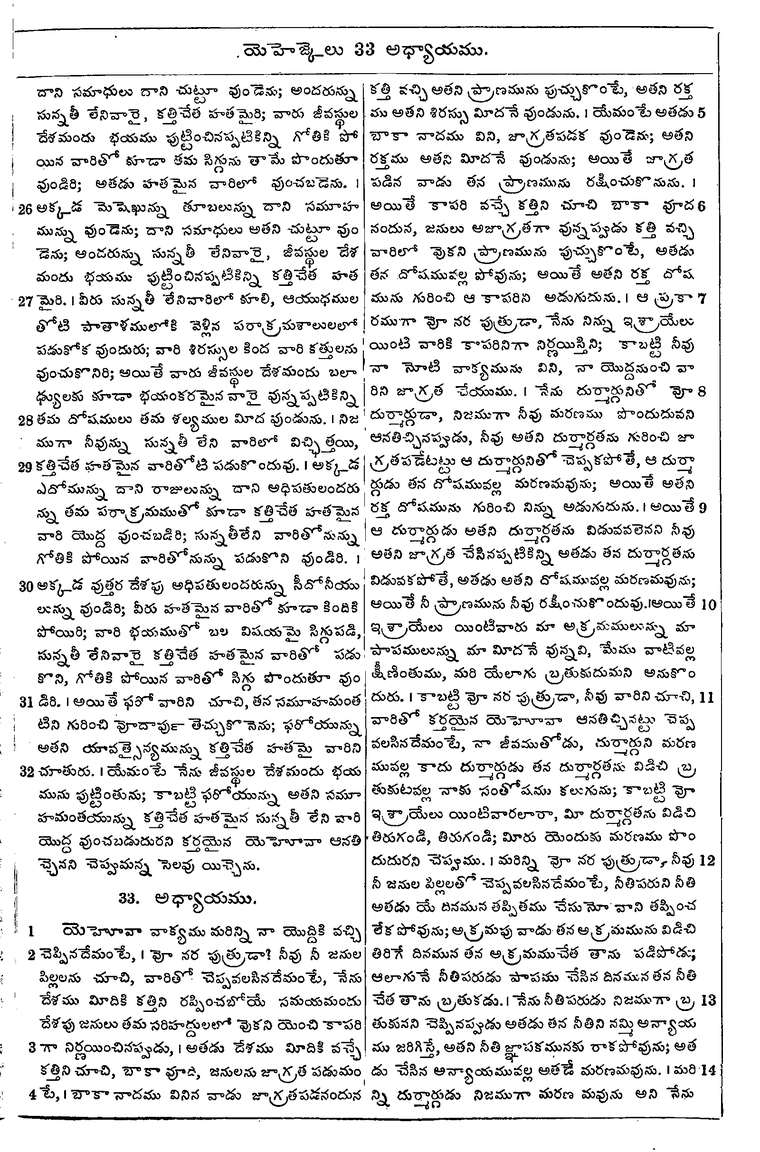 యెహెజ్కెలు 33 అధ్యాయము.
దాని సమాధులు దాని చుట్టూ వుండెను; అందరున్ను
సున్నతీ లేనివారై, కత్తిచేత హతమైరి; వారు జీవస్థుల
దేశమందు భయము పుట్టించినప్పటికిన్ని గోతికి పో
యిన వారితో కూడా తమ సిగ్గును తామే పొందుతూ
వుండిరి; అతడు హతమైన వారిలో వుంచబడెను. ।
26 అక్కడ మెషెఖున్ను తూబలున్ను దాని సమూహ
మున్ను వుండెను; దాని సమాధులు అతని చుట్టూ వుం
డెను; అందరున్ను సున్నతీ లేనివారై, జీవస్థుల దేశ
మందు భయము పుట్టించినప్పటికిన్ని కత్తిచేత హత
27 మైరి. । వీరు సున్నతీ లేనివారిలో కూలి, ఆయుధముల
తోటి పాతాళములోకి వెళ్లిన పరాక్రమశాలులలో
పడుకోక వుందురు; వారి శిరస్సుల కింద వారి కత్తులను
వుంచుకొనిరి; అయితే వారు జీవస్థుల దేశమందు బలా
ధ్యులకు కూడా భయంకరమైన వారై వున్నప్పటికిన్ని
28 తమ దోషములు తమ శల్యముల మీద వుండును. । నిజ
ముగా నీవున్ను సున్నతీ లేని వారిలో విచ్ఛిత్తయి,
29 కత్తిచేత హతమైన వారితోటి పడుకొందువు. । అక్కడ
ఎదోమున్ను దాని రాజులున్ను దాని అధిపతులందరు
న్ను తమ పరాక్రమముతో కూడా కత్తిచేత హతమైన
వారి యొద్ద వుంచబడిరి; సున్నతీలేని వారితోనున్ను
గోతికి పోయిన వారితోనున్ను పడుకొని వుండిరి. ।
30 అక్కడ వుత్తర దేశపు అధిపతులందరున్ను సీదోనీయు
లున్ను వుండిరి; వీరు హతమైన వారితో కూడా కిందికి
పోయిరి; వారి భయముతో బల విషయమై సిగ్గుపడి,
సున్నతీ లేనివారై కత్తిచేత హతమైన వారితో పడు
కొని, గోతికి పోయిన వారితో సిగ్గు పొందుతూ వుం
31 డిరి. । అయితే ఫరో వారిని చూచి, తన సమూహమంత
టిని గురించి వోదార్పు తెచ్చుకొనెను; ఫరోయున్ను
అతని యావత్సైన్యమున్ను కత్తిచేత హతమై వారిని
32 చూతురు. । యేమంటే నేను జీవస్థుల దేశమందు భయ
మును పుట్టింతును; కాబట్టి ఫరోయున్ను అతని సమూ
హమంతయున్ను కత్తిచేత హతమైన సున్నతీ లేని వారి
యొద్ద వుంచబడుదురని కర్తయైన యెహోవా ఆనతి
చ్చెనని చెప్పుమన్న సెలవు యిచ్చెను.
33. అధ్యాయము.
1 యెహోవా వాక్యము మరిన్ని నా యొద్దికి వచ్చి
2 చెప్పినదేమంటే, । వో నర పుత్రుడా? నీవు నీ జనుల
పిల్లలను చూచి, వారితో చెప్పవలసినదేమంటే, నేను
దేశము మీదికి కత్తిని రప్పించబోయే సమయమందు
దేశపు జనులు తమ సరిహద్దులలో వొకని యెంచి కాపరి
3 గా నిర్ణయించినప్పుడు, । అతడు దేశము మీదికి వచ్చే
కత్తిని చూచి, బాకా వూది, జనులను జాగ్రత పడుమం
4 టే, । బాకా నాదము వినిన వాడు జాగ్రతపడనందున
కత్తి వచ్చి అతని ప్రాణమును పుచ్చుకొంటే, అతని రక్త
ము అతని శిరస్సు మీదనే వుండును. । యేమంటే అతడు 5
బాకా నాదము విని, జాగ్రతపడక వుండెను; అతని
రక్తము అతని మీదనే వుండును; అయితే జాగ్రత
పడిన వాడు తన ప్రాణమును రక్షించుకొనును. ।
అయితే కాపరి వచ్చే కత్తిని చూచి బాకా వూద 6
నందున, జనులు అజాగ్రతగా వున్నప్పుడు కత్తి వచ్చి
వారిలో వొకని ప్రాణమును పుచ్చుకొంటే, అతడు
తన దోషమువల్ల పోవును; అయితే అతని రక్త దోష
మును గురించి ఆ కాపరిని అడుగుదును. । ఆ ప్రకా 7
రముగా వో నర పుత్రుడా, నేను నిన్ను ఇశ్రాయేలు
యింటి వారికి కాపరినిగా నిర్ణయిస్తిని; కాబట్టి నీవు
నా నోటి వాక్యమును విని, నా యొద్దనుంచి వా
రిని జాగ్రత చేయుము. । నేను దుర్మార్గునితో వో 8
దుర్మార్గుడా, నిజముగా నీవు మరణము పొందుదువని
ఆనతిచ్చినప్పుడు, నీవు అతని దుర్మార్గతను గురించి జా
గ్రతపడేటట్టు ఆ దుర్మార్గునితో చెప్పకపోతే, ఆ దుర్మా
ర్గుడు తన దోషమువల్ల మరణమవును; అయితే అతని
రక్త దోషమును గురించి నిన్ను అడుగుదును. । అయితే 9
ఆ దుర్మార్గుడు అతని దుర్మార్గతను విడువవలెనని నీవు
అతని జాగ్రత చేసినప్పటికిన్ని అతడు తన దుర్మార్గతను
విడువకపోతే, అతడు అతని దోషమువల్ల మరణమవును;
అయితే నీ ప్రాణమును నీవు రక్షించుకొందువు.।అయితే 10
ఇశ్రాయేలు యింటివారు మా అక్రమములున్ను మా
పాపములున్ను మా మీదనే వున్నవి, మేము వాటివల్ల
క్షీణింతుము, మరి యేలాగు బ్రతుకుదుమని అనుకొం
దురు. । కాబట్టి వో నర పుత్రుడా, నీవు వారిని చూచి, 11
వారితో కర్తయైన యెహోవా ఆనతిచ్చినట్టు చెప్ప
వలసినదేమంటే, నా జీవముతోడు, దుర్మార్గుని మరణ
మువల్ల కాదు దుర్మార్గుడు తన దుర్మార్గతను విడిచి బ్ర
తుకుటవల్ల నాకు సంతోషము కలుగును; కాబట్టి వో
ఇశ్రాయేలు యింటివారలారా, మీ దుర్మార్గతను విడిచి
తిరుగండి, తిరుగండి; మీరు యెందుకు మరణము పొం
దుదురని చెప్పుము. । మరిన్ని వో నర పుత్రుడా, నీవు 12
నీ జనుల పిల్లలతో చెప్పవలసినదేమంటే, నీతిపరుని నీతి
అతడు యే దినమున తప్పితము చేసునో వాని తప్పించ
లేక పోవును; అక్రమపు వాడు తన అక్రమమును విడిచి
తిరిగే దినమున తన అక్రమముచేత తాను పడిపోడు;
ఆలాగునే నీతిపరుడు పాపము చేసిన దినమున తన నీతి
చేత తాను బ్రతుకడు. । నేను నీతిపరుడు నిజముగా బ్ర 13
తుకునని చెప్పినప్పుడు అతడు తన నీతిని నమ్మి అన్యాయ
ము జరిగిస్తే, అతని నీతి జ్ఞాపకమునకు రాకపోవును; అత
డు చేసిన అన్యాయమువల్ల అతడే మరణమవును. । మరి 14
న్ని దుర్మార్గుడు నిజముగా మరణ మవును అని నేను